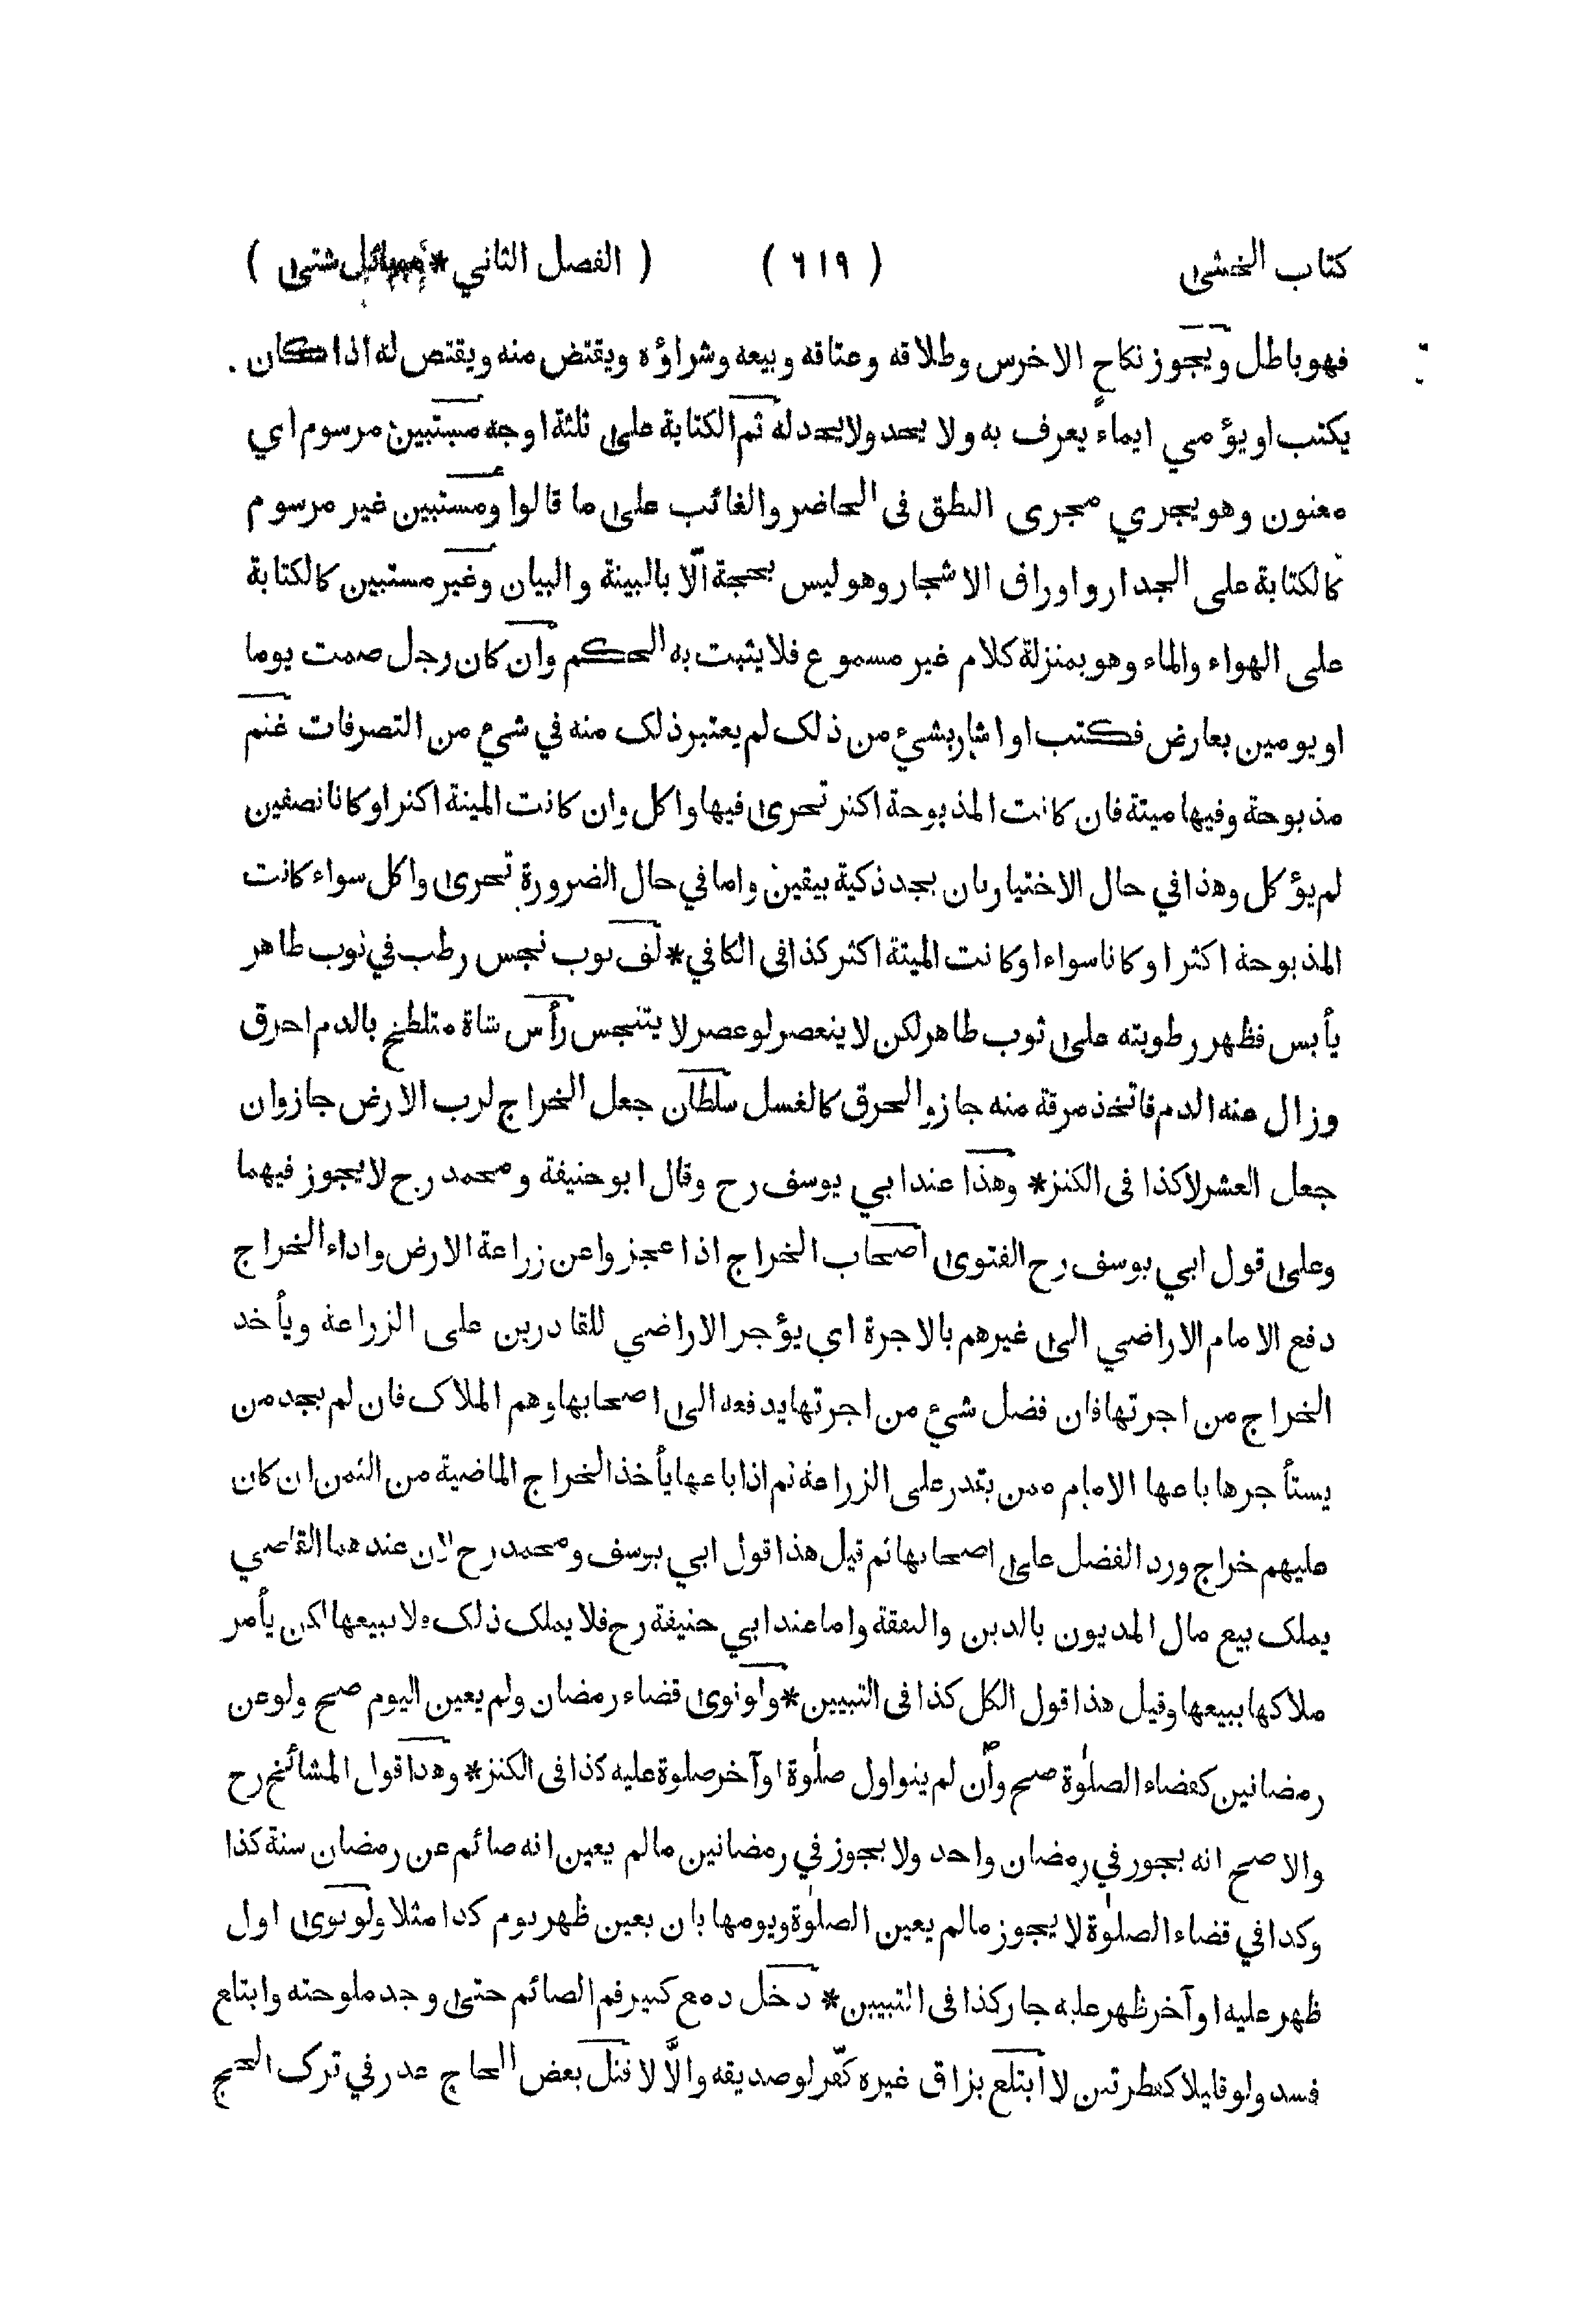 كتاب الخنثى ( ٦١٩ ) ( الفصل الثاني * مسائل شتى )
فهو باطل ويجوز نكاح الاخرس وطلاقه وعتاقه وبيعه وشراؤه ويقتض منه ويقتص له اذا كان
يكتب او يؤمي ايماء يعرف به ولا يحد ولا يحد له ثم الكتابة على ثلثة اوجه مستبين مرسوم اي
معنون وهو يجري مجرى النطق فى الحاضر والغائب على ما قالوا ومستبين غير مرسوم
كالكتابة على الجدار واوراق الاشجار وهو ليس بحجة الّا بالبينة والبيان وغير مستبين كالكتابة
على الهواء والماء وهو بمنزلة كلام غير مسموع فلا يثبت به الحكم وان كان رجل صمت يوما
او يومين بعارض فكتب او اشار بشيء من ذلك لم يعتبر ذلك منه في شيء من التصرفات غنم
مذبوحة وفيها ميتة فان كانت المذبوحة اكثر تحرى فيها واكل وان كانت الميتة اكثر او كانا نصفين
لم يؤكل وهذا في حال الاختيار بان يجد ذكية بيقين واما في حال الضرورة تحرى واكل سواء كانت
المذبوحة اكثر او كانا سواء او كانت الميتة اكثر كذا فى الكافي * لف ثوب نجس رطب في ثوب طاهر
يأبس فظهر رطوبته على ثوب طاهر لكن لا ينعصر لو عصر لا يتنجس رأس شاة متلطخ بالدم احرق
وزال عنه الدم فاتخذ مرقة منه جاز والحرق كالغسل سلطان جعل الخراج لرب الارض جاز وان
جعل العشر لا كذا فى الكنز * وهذا عند ابي يوسف رح وقال ابو حنيفة ومحمد رح لا يجوز فيهما
وعلى قول ابي يوسف رح الفتوى اصحاب الخراج اذا عجزوا عن زراعة الارض واداء الخراج
دفع الامام الاراضي الى غيرهم بالاجرة اي يؤجر الاراضي للقادرين على الزراعة ويأخذ
الخراج من اجرتها فان فضل شيء من اجرتها يدفعه الى اصحابها وهم الملاك فان لم يجد من
يستأجرها باعها الامام ممن يقدر على الزراعة ثم اذا باعها يأخذ الخراج الماضية من الثمن ان كان
عليهم خراج ورد الفضل على اصحابها ثم قيل هذا قول ابي يوسف ومحمد رح لان عندهما القاضي
يملك بيع مال المديون بالدين والنفقة واما عند ابي حنيفة رح فلا يملك ذلك فلا يبيعها لكن يأمر
ملاكها ببيعها وقيل هذا قول الكل كذا فى التبيين * ولو نوى قضاء رمضان ولم يعين اليوم صح ولو عن
رمضانين كقضاء الصلوة صح وان لم ينو اول صلوة او آخر صلوة عليه كذا فى الكنز * وهذا قول المشائخ رح
والاصح انه يجوز في رمضان واحد ولا يجوز في رمضانين مالم يعين انه صائم عن رمضان سنة كذا
وكذا في قضاء الصلوة لا يجوز مالم يعين الصلوة ويومها بان يعين ظهر يوم كذا مثلا ولو نوى اول
ظهر عليه او آخر ظهر عليه جاز كذا فى التبيين * دخل دمع كثير فم الصائم حتى وجد ملوحته وابتلع
فسد ولو قليلا كقطرتين لا ابتلع بزاق غيره كفّر لو صديقه والّا لا قتل بعض الحاج عذر في ترك الحج